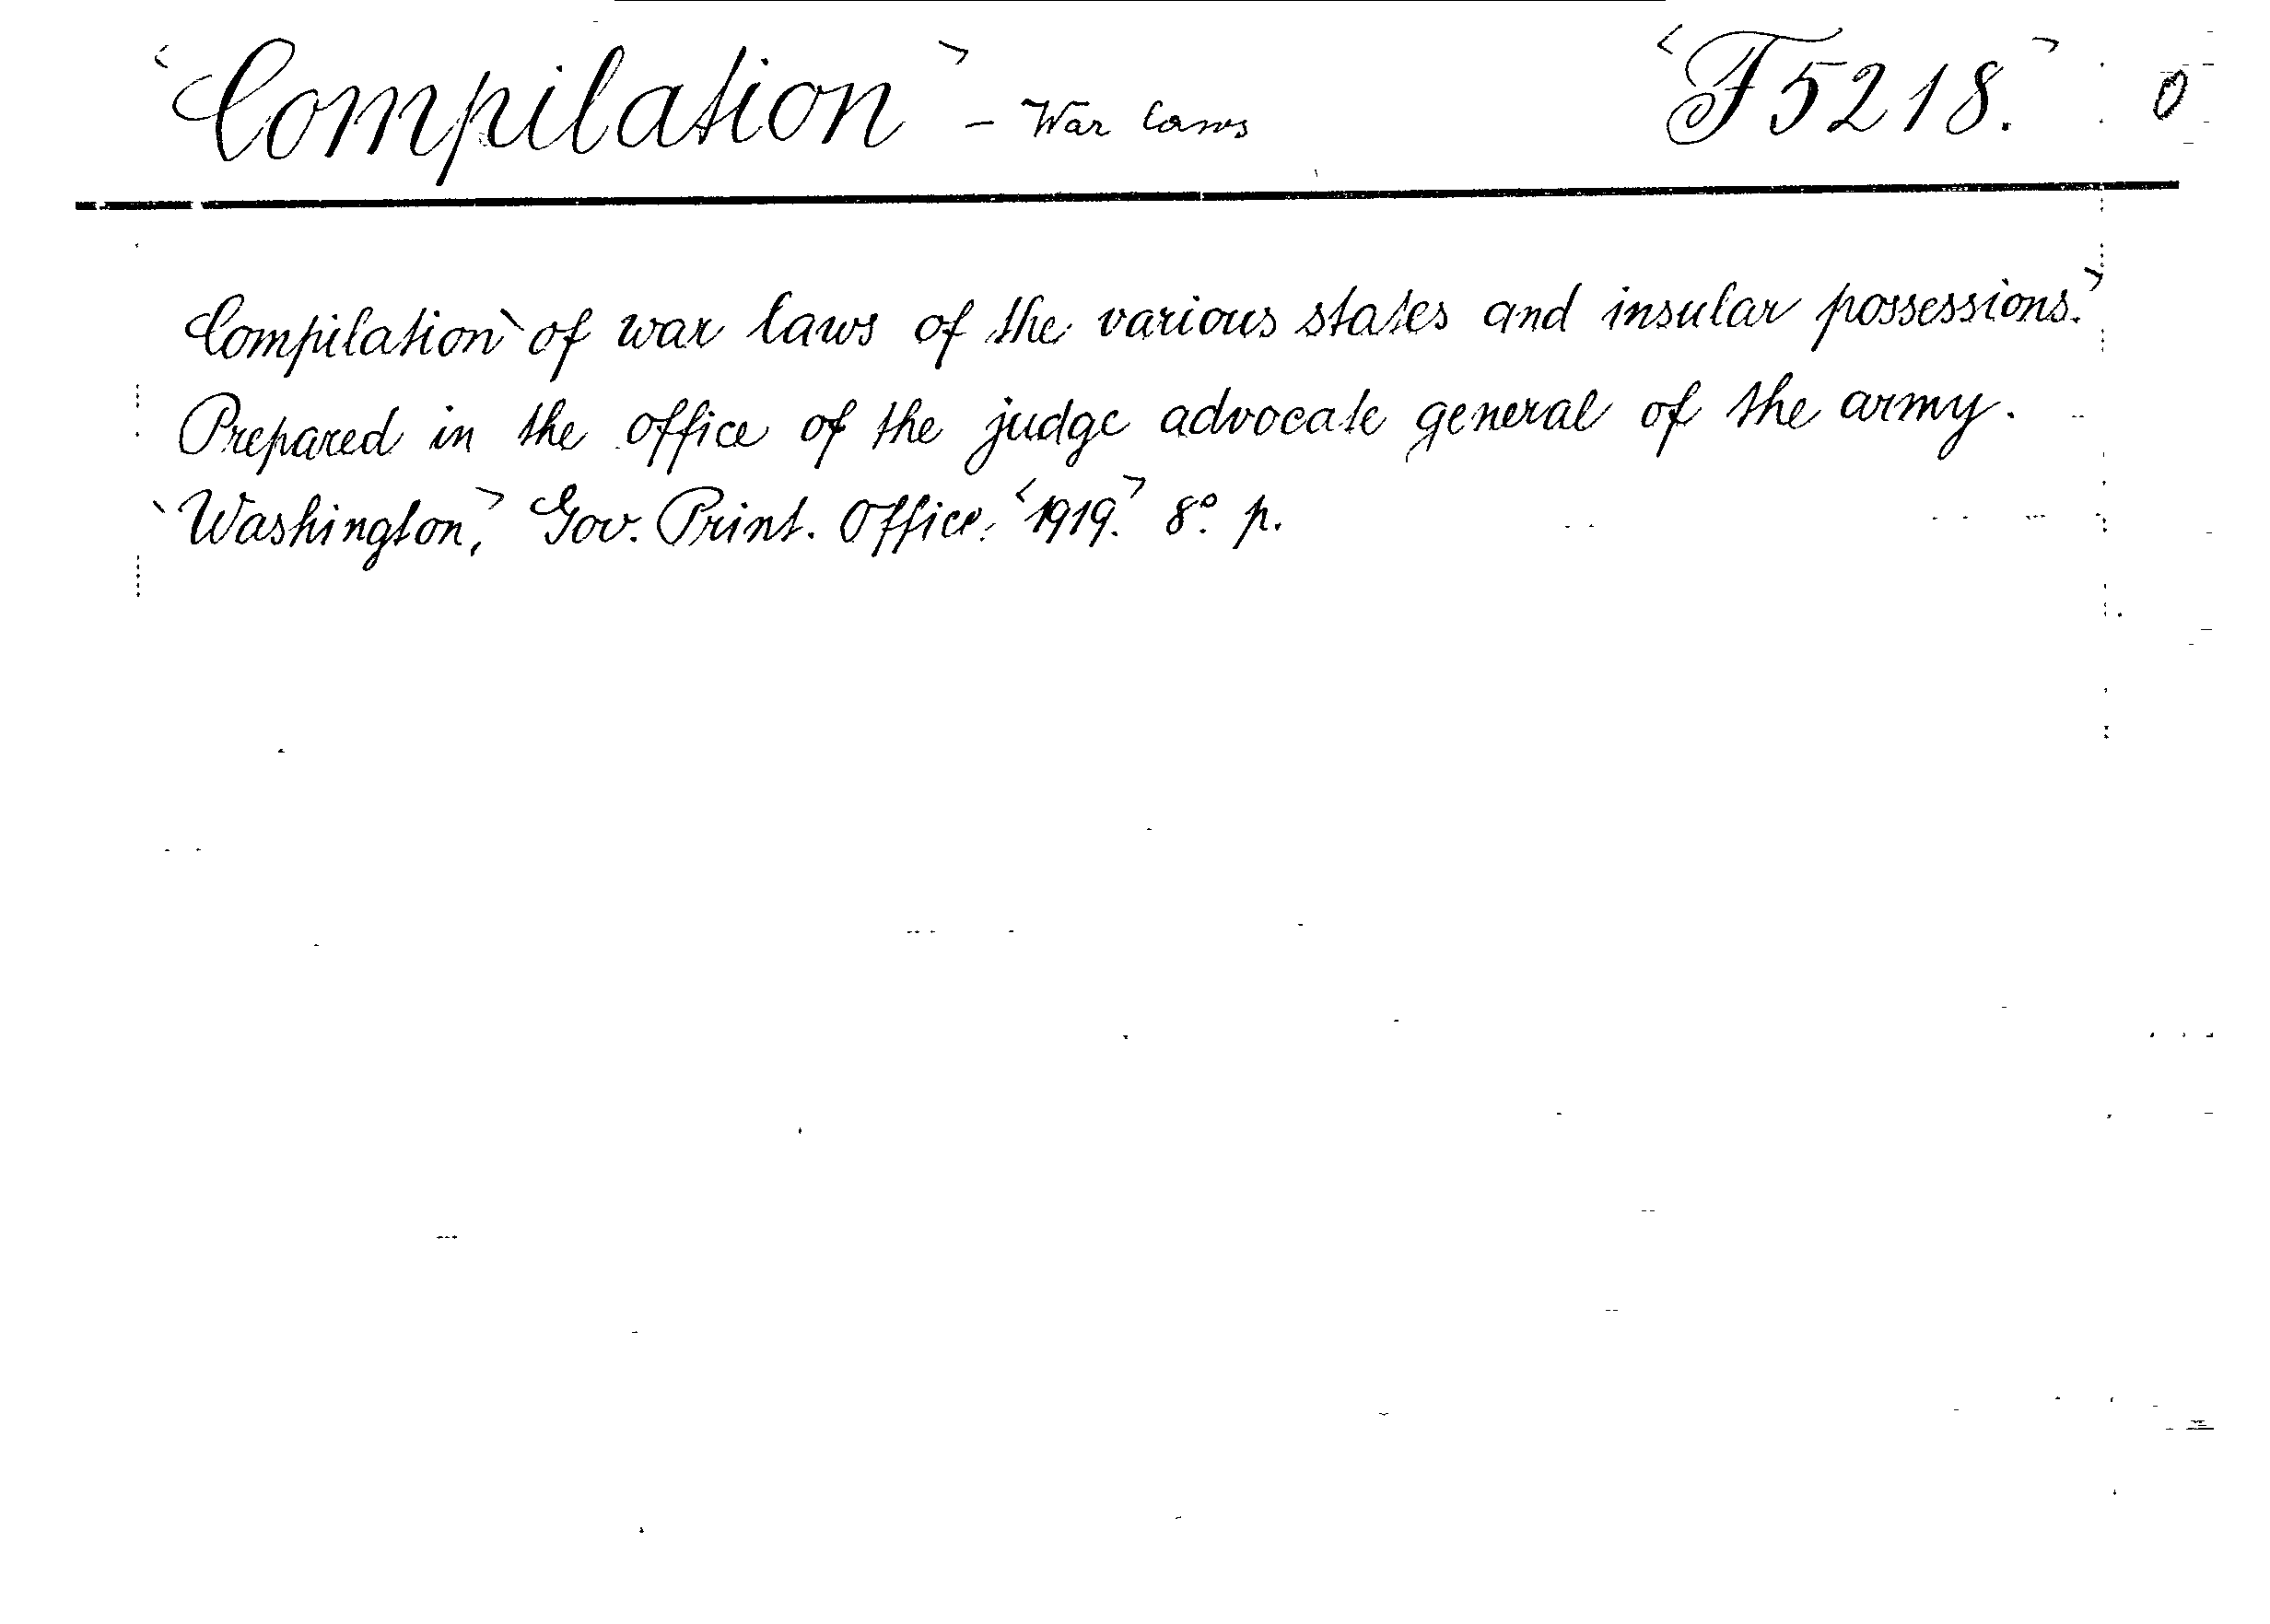 ‹Compilation› – War laws ‹F5218.› 0
Compilation` of war laws of the various states and insular possessions.›
Prepared in the office of the judge advocate general of the army.
`Washington,› Gov. Print. Office. ‹1919.› 8°. p.